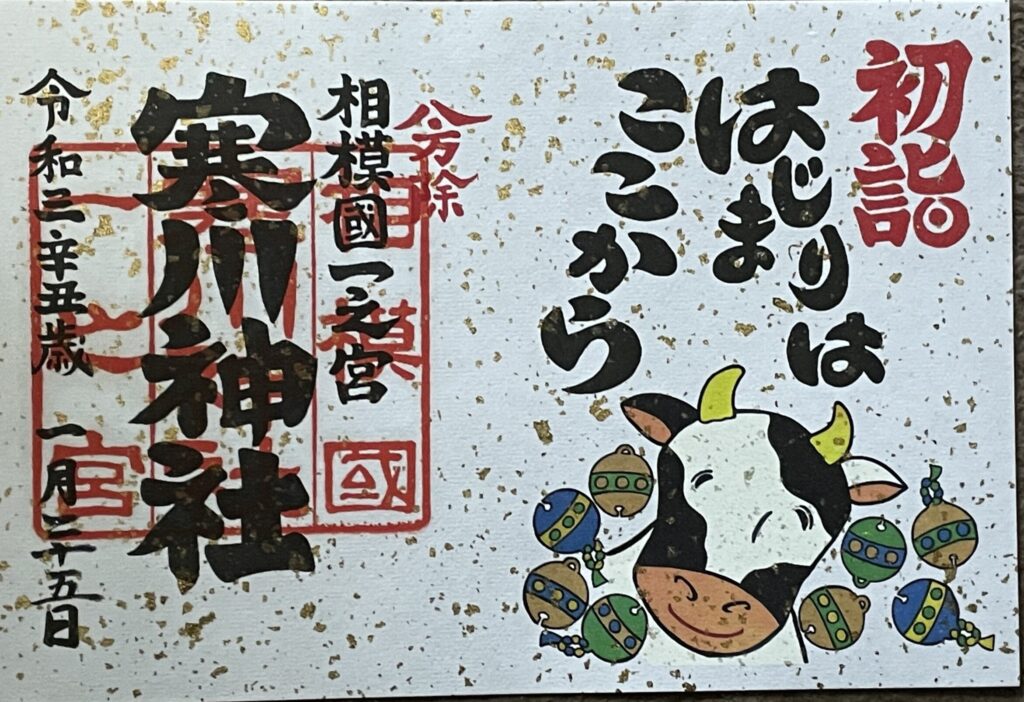 初詣
はじまりは
ここから
八方除
相模國一之宮
寒川神社
令和三辛丑歳 一月二十五日
相模國
寒川神社
一之宮